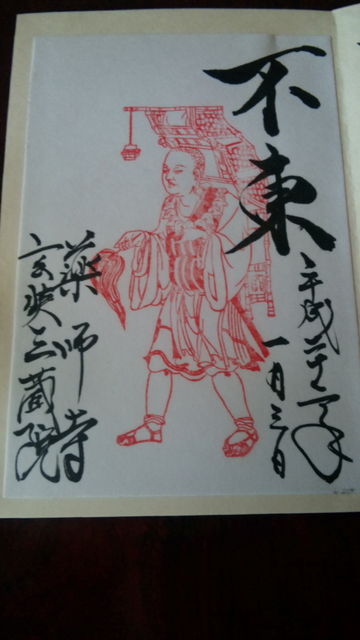 不東
平成
一月三日
薬師寺
玄奘三蔵院